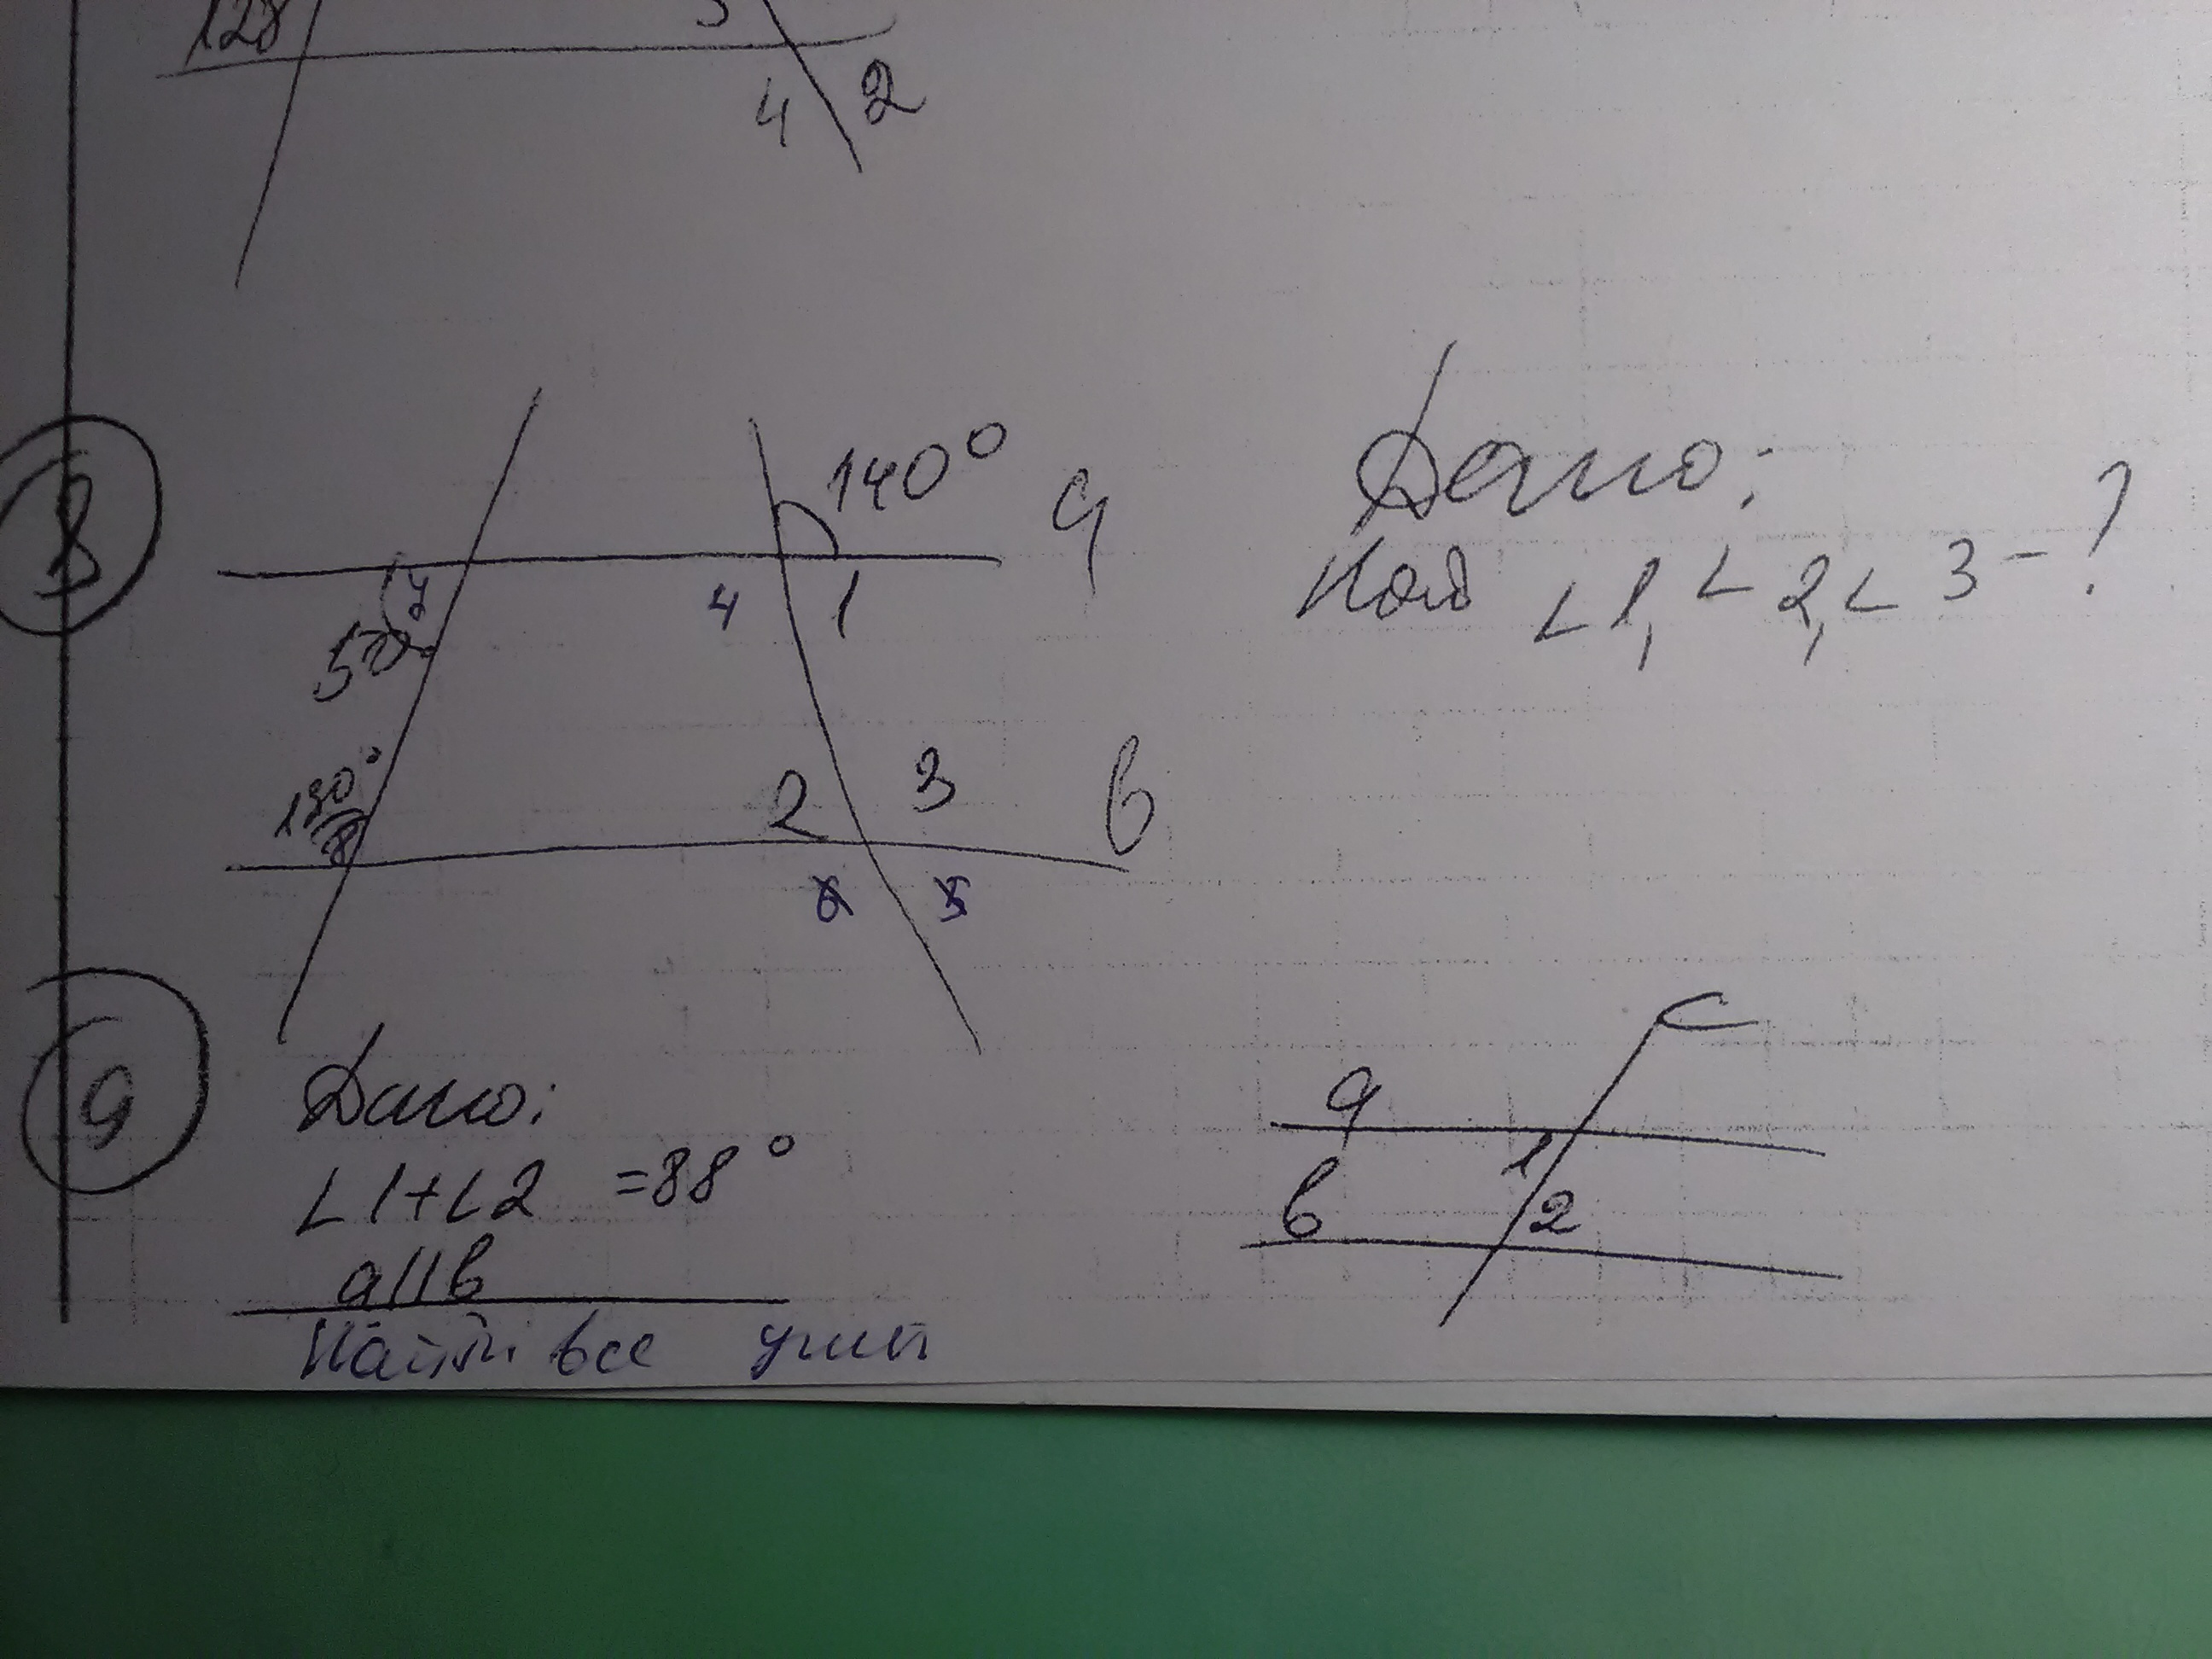 128
3
4 2
8
140° a
7 4 1
50°
130°
8
2 3 b
6 5
Дано:
Найд ∠1, ∠2, ∠3 - ?
9
Дано:
∠1+∠2 =88°
a||b
Найти все углы
c
a
1
b 2